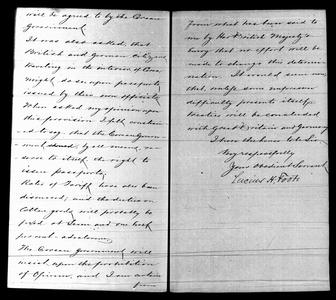 will be agreed to by the Corean
Government.
It was also asked, that
British and German Citizens
traveling in the interior of Corea
might do so upon passports
issued by their own officials.
When asked my opinion of
this provision, I felt constrained
to say, that the Corean Govern-
ment should, by all means, re-
serve to itself, the right to
issue passports.
Rates of Tariff have also been
discussed; and the duties on
Cotton goods will probably be
fixed at seven and one half
per cent. ad valorem.
The Corean Government will
insist upon the prohibition
of Opium, and I am certain
from
From what has been said to
me by Her British Majesty's
Envoy that no effort will be
made to change this determi-
nation. It would seem now
that, unless some unforeseen
difficulty presents itself,
treaties will be concluded
with Great Britain and Germany.
I have the honor to be Sir
Very respectfully
Your Obedient Servant
Lucius H. Foote